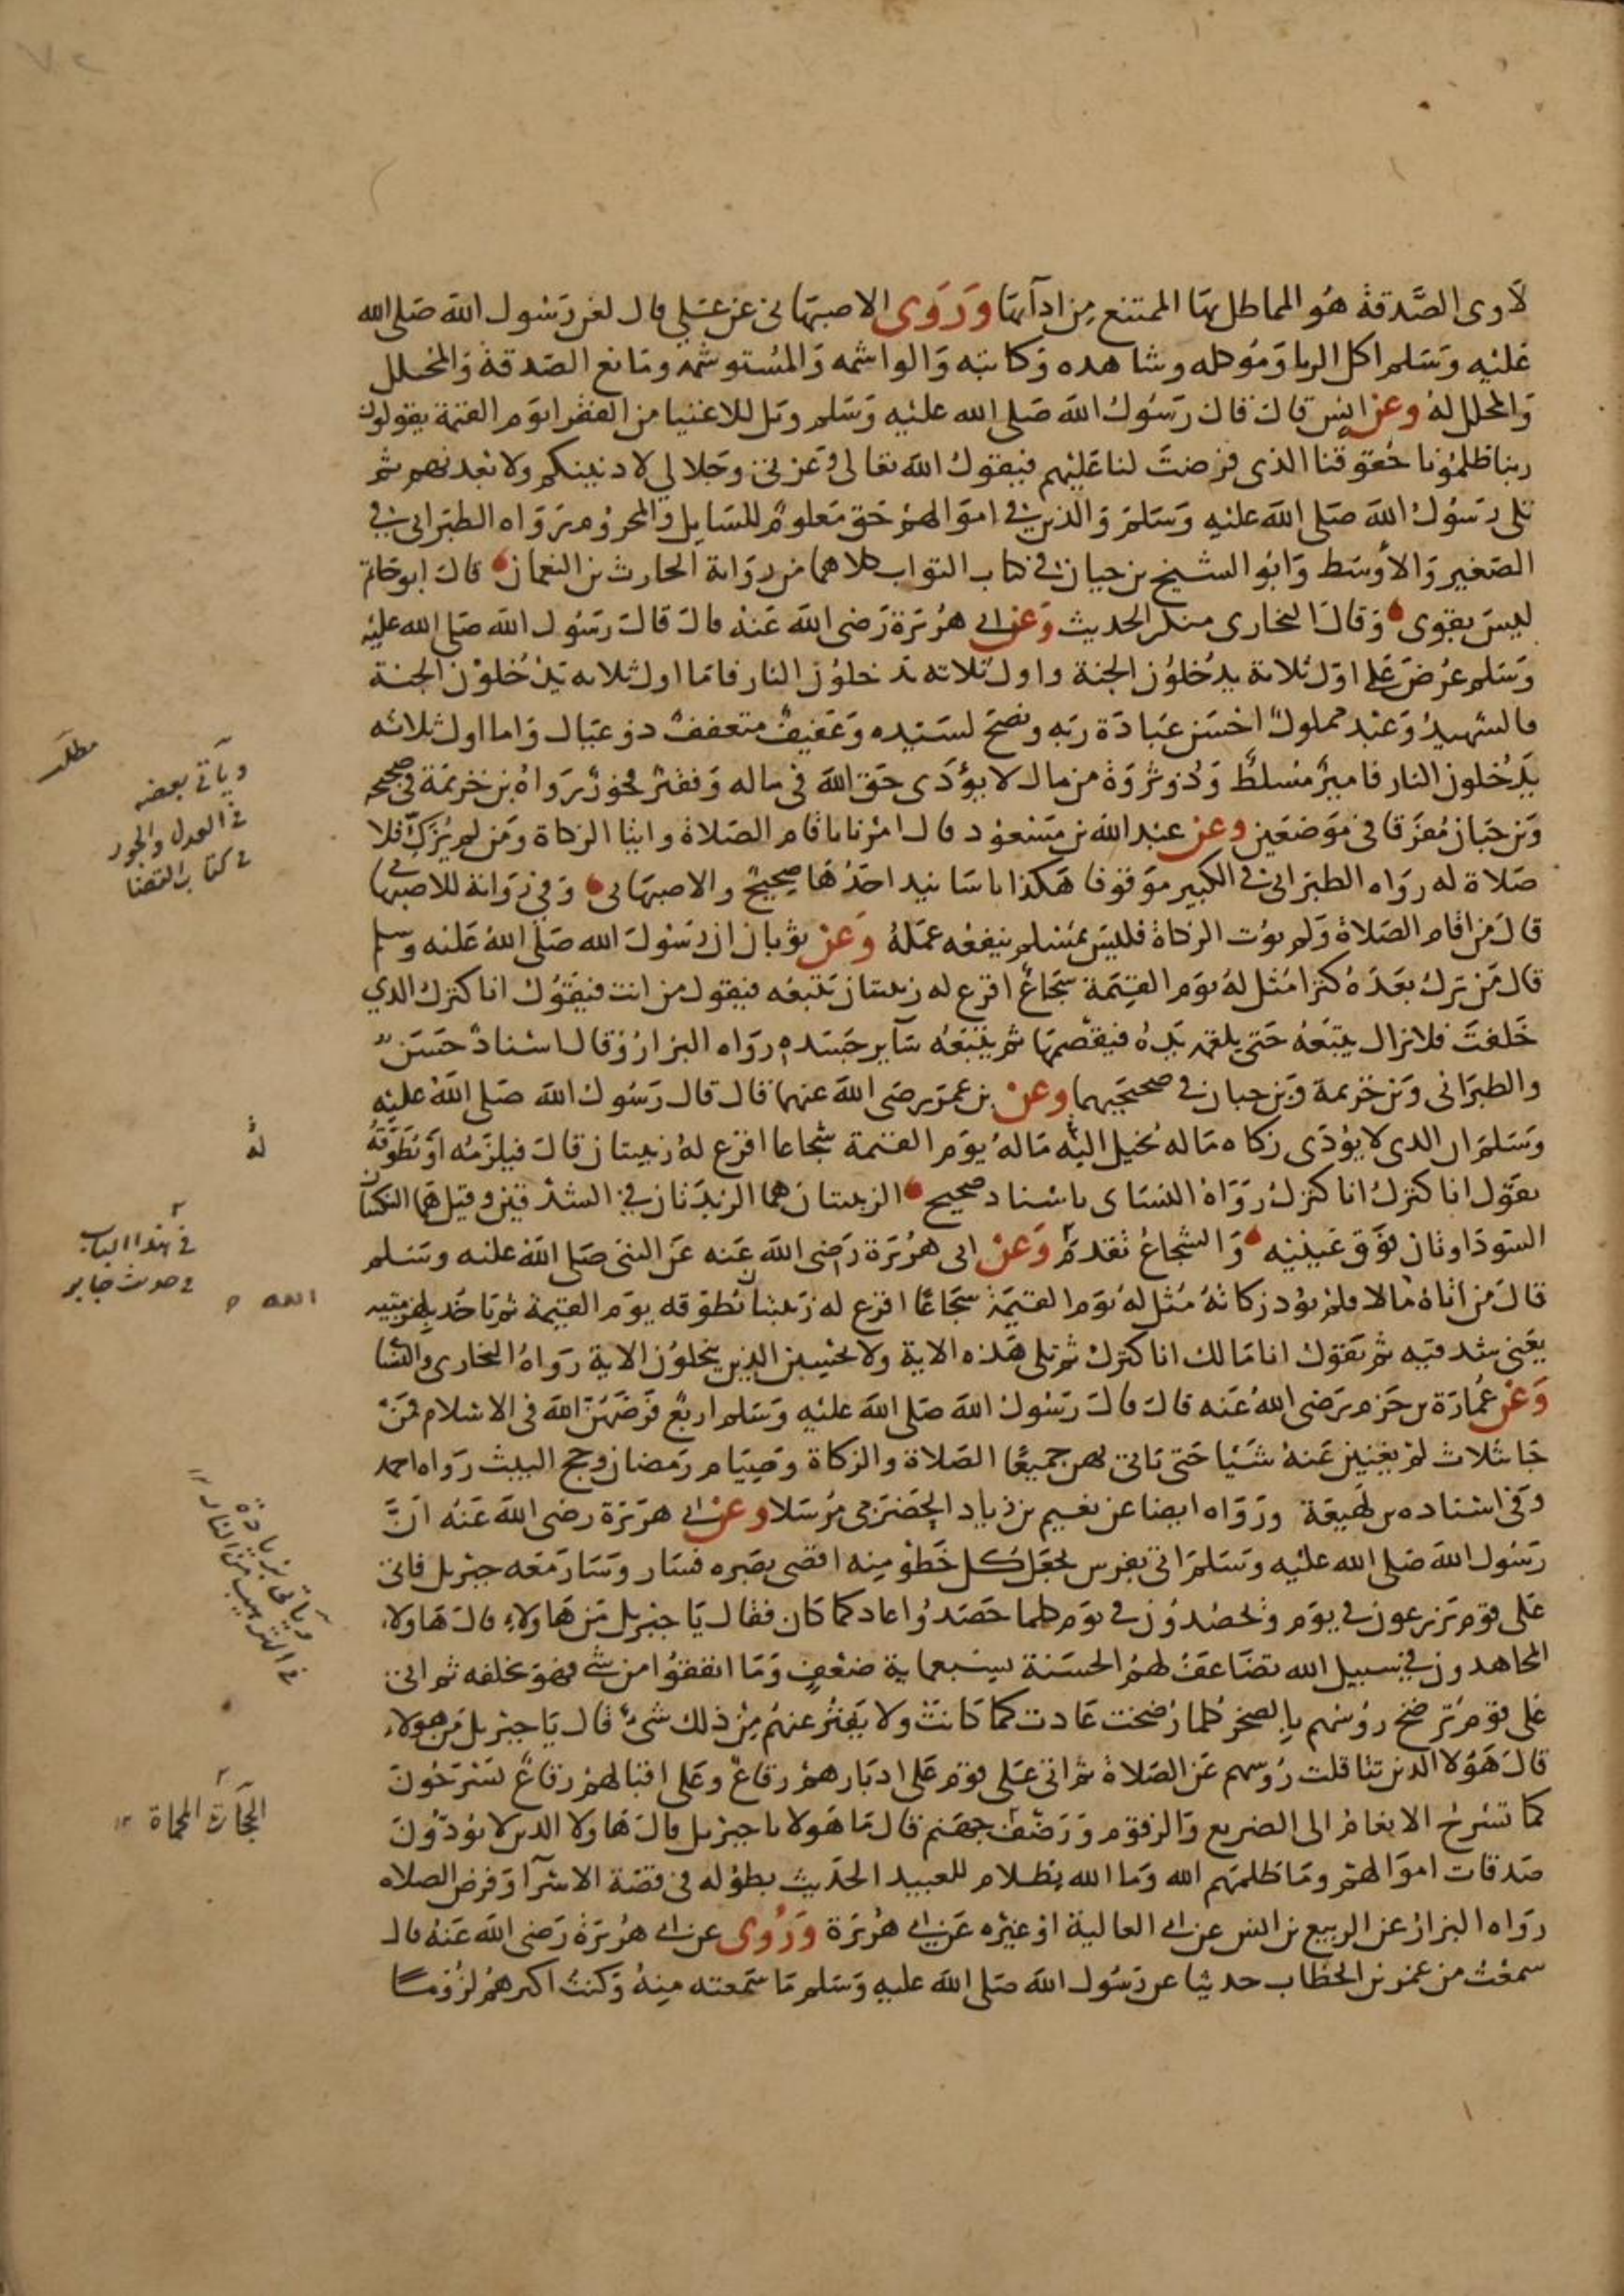 لاوى الصَّدقة هُو المماطل بهَا الممتنع مِن ادآيهَا وَرَوَى الاصبهَانى عن عَلي قال لعن رَسُول اللهَ صَلى الله
عَليْه وَسَلم اكل الربا وَمُوكله وشاهده وَكاتبه وَالواشمه وَالمُستوشمه ومَانع الصَدقة وَالمحلل
وَالمحلل لهُ وعن انسٍ قال قال رَسُولُ اللهَ صَلى الله عليْه وَسَلم ويل للاغنيا من الفقرا يَوم القيمة يقولون
ربنا ظلمُونا حُقوقنا الذى فرضتَ لنا عَليْهم فيقولُ اللهَ تعالى وَعزتى وجَلالي لادنينكم ولابعدنهم ثم
تلى رسُولُ اللهَ صَلى اللهَ عليْه وَسَلمَ وَالذين فى امَوالهمْ حَق مَعلومٌ للسَايل وَالمحرُوم رَوَاه الطبَرانى فى
الصَغير وَالأوسَط وَابُو الشيخ بن حيان فى كتاب الثواب كلاهما من روَاية الحارث بن النعمان قال ابو حَاتم
ليسَ بقوى وَقالَ البخارى منكر الحديث وَعن ابى هرُيَرَة رَضى اللهَ عَنهُ قال قالَ رَسُول اللهَ صَلى الله عليْه
وَسَلم عرُضَ عَلي اوّل ثلاثة يدُخلوُن الجنة واول ثلاثه يدخلوُن النار فامَا اول ثلاثه يَدْخُلوُن الجنة
فالشهيدُ وَعَبْد مملوكٌ احْسَن عبَادَة رَبه ونصَحَ لسَيّده وَعَفيفٌ متعففٌ ذو عيَال وَاما اول ثلاثه
يدُخلون النار فاميرٌ مُسلطٌ وَذُو ثرْوَة من مال لا يؤَدى حَق اللهَ فى ماله وَفقيْر فخورٌ رَواهُ بن خزيمَة فى صحيحه
وَبن حبَان مُفرَقا فى مَوضعَين وعن عبْد الله بن مسْعوُد قال امْرنا باقام الصَلاة وايتا الزكاة ومَن لم يُزَكّ فلا
صَلاة له روَاه الطبَرانى فى الكبير مَوقوفا هَكذا باسَانيد احَدُهَا صَحيحٌ والاصبهَانى وَفى رَوَاية للاصبهَانى
قال مَن اقام الصَلاة وَلم يوُت الزكاة فليسَ بمُسْلم ينفعُه عمَلهُ وَعَنْ ثوْبان ان رَسُولَ الله صَلى اللهُ عَليْه وسلم
قال مَن ترَكَ بَعْدَهُ كنزا مُثلَ لهُ يوَم القيمَة شجَاعٌ اقرع له زبيبتان يَتبعُه فيقول من انت فيقوُلُ انا كنزك الذي
خَلفتَ فلا يزال يتبَعُهُ حَتى يلقمه يَدهُ فيقضمهَا ثم يتبَعُه سَآير جَسَده رَوَاه البزارُ وَقال اسْنادٌ حَسَنٌ
والطبَرانى وَبن خزيمة وَبن حبان فى صحيحَيهما وعنْ بن عمَرَ رضى اللهَ عنهما قال قال رَسُولُ اللهَ صَلى اللهَُ عليْه
وَسَلمَ ان الذى لا يوُدَى زكاه مَاله يخيل اليْه مَالهُ يوَم القيمة شُجاعا اقرع لهُ زبيبتان قالَ فيلزَمُه اوَ يُطَوّقهُ
يَقوُل انا كنزكَ انا كنزكَ رَوَاهُ النسَاى باسْناد صحيح الزبيبتان هما الزبدَتان فى الشدْقين وقيل هَما النكتتان
السَودَاوتان فوَق عَينيْه وَالشجاعُ تقدمَ وَعَنْ ابى هرُيَرَة رَضى اللهَ عَنه عَن النبى صَلى اللهَ عليه وسَلم
قال مَن اتاهُ مَالا فلمْ يؤد زكاتهُ مُثل لهُ يَوم القيمَة شجَاعًا اقرع له زَبيبتان يُطوّقه يوَم القيمة ثم يَاخُذ بلِهزمتيه
يعَنى شدقيَه ثم يَقوُل انا مَالك انا كنزك ثم تلى هَذه الاية ولا يحْسِبن الذين يَبخلوُن الاية رَواهُ البخارى والنسَا
وَعَن عُمارَة بن حَزم رَضى اللهُ عَنه قالَ قالَ رَسُولُ اللهَ صَلى اللهَ عليْه وَسَلم ارْبعٌ فَرَضَهُنّ اللهَ فى الاسْلام فمَنْ
جَا بثلاث لمْ يغْنين عَنهُ شَيْا حَتى يَاتى بهن جميعًا الصَلاة والزكاة وصِيَام رَمَضان وحج البيتْ رَوَاه احمد
وَفى اسْناده بن لهَيعَة ورَوَاه ايضا عن نعَيم بن زياد الحَضرَمى مرُسَلا وعَن ابى هرَيرَة رضى اللهَ عَنهُ انَّ
رَسُول اللهَ صَلى الله عليْه وَسَلمَ اتى بفرس يجَعَل كل خَطوٍ مِنه اقصى بصَره فسَار وَسَارَ مَعَه جبْريل فاتى
عَلى قوَم يَزرعون فى يوَم وَيحْصُدوُن فى يوَم كلما حَصَدُوا عاد كما كَان فقال يَا جبْريل مَن هَاولاءِ قالَ هَاولاء
المجَاهدون فى سبيل الله تضَاعَفُ لهُم الحسَنة بسَبعماية ضعْفٍ وَمَا انفقوُا من شىء فهوَ يخلفه ثم اتى
عَلى قوَم ترُضخ روُسْهم بالصخرْ كلما رُضخت عَادت كما كَانتْ ولا يَفترُ عنهُم مِنْ ذلك شىْءٌ قال يَا جبْريل مَن هوَلاء
قالَ هَؤلا الذين تثاقلت رُوسهم عَن الصَلاة ثم اتى عَلى قوَم عَلى ادبَارهمْ رقاعٌ وعَلى اقبَالهمْ رقاعٌ يَسْرَحُونَ
كما تسْرحُ الانعَامُ الى الضريع وَالزقوم وَرَضْف جهَنم قال مَا هَولا يا جبرْيل قالَ هَاولا الذين لا يُودّوُنَ
صَدقات امَوالهمْ ومَا ظلمَهم الله وَما الله بظلام للعبيد الحَديث بطوُله فى قصَة الاسْرآ وَفرض الصلاه
روَاه البزارُ عن الربيع بن انس عن ابى العالية اوْ غيْره عَن ابى هرُيَرَة وَرُوى عن ابى هرُيَرَة رَضى اللهَ عَنهُ قال
سمعْتُ من عُمَر بن الخطاب حديثا عن رَسُول اللهَ صَلى اللهَ عليه وَسَلم مَا سَمعته مِنهُ وَكنتُ اكثرهُمْ لزُوُمًا
مطلب
وياتى بعضه
فى العدل والجور
فى كتاب القضا
لهُ
فى هذا الباب
فى حديث جابر
وياتى بزيادة
فى الترهيب من النار
الحجَارة المحماة